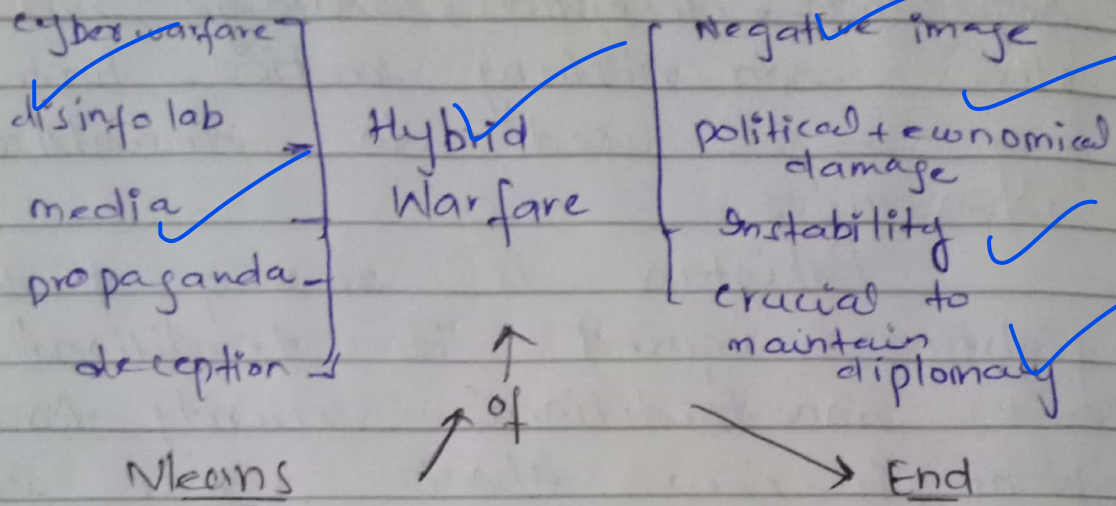 cyber warfare
disinfo lab
media
propaganda
deception
Means
Hybrid
Warfare
of
Negative image
political + economical
damage
Instability
crucial to
maintain
diplomacy
End